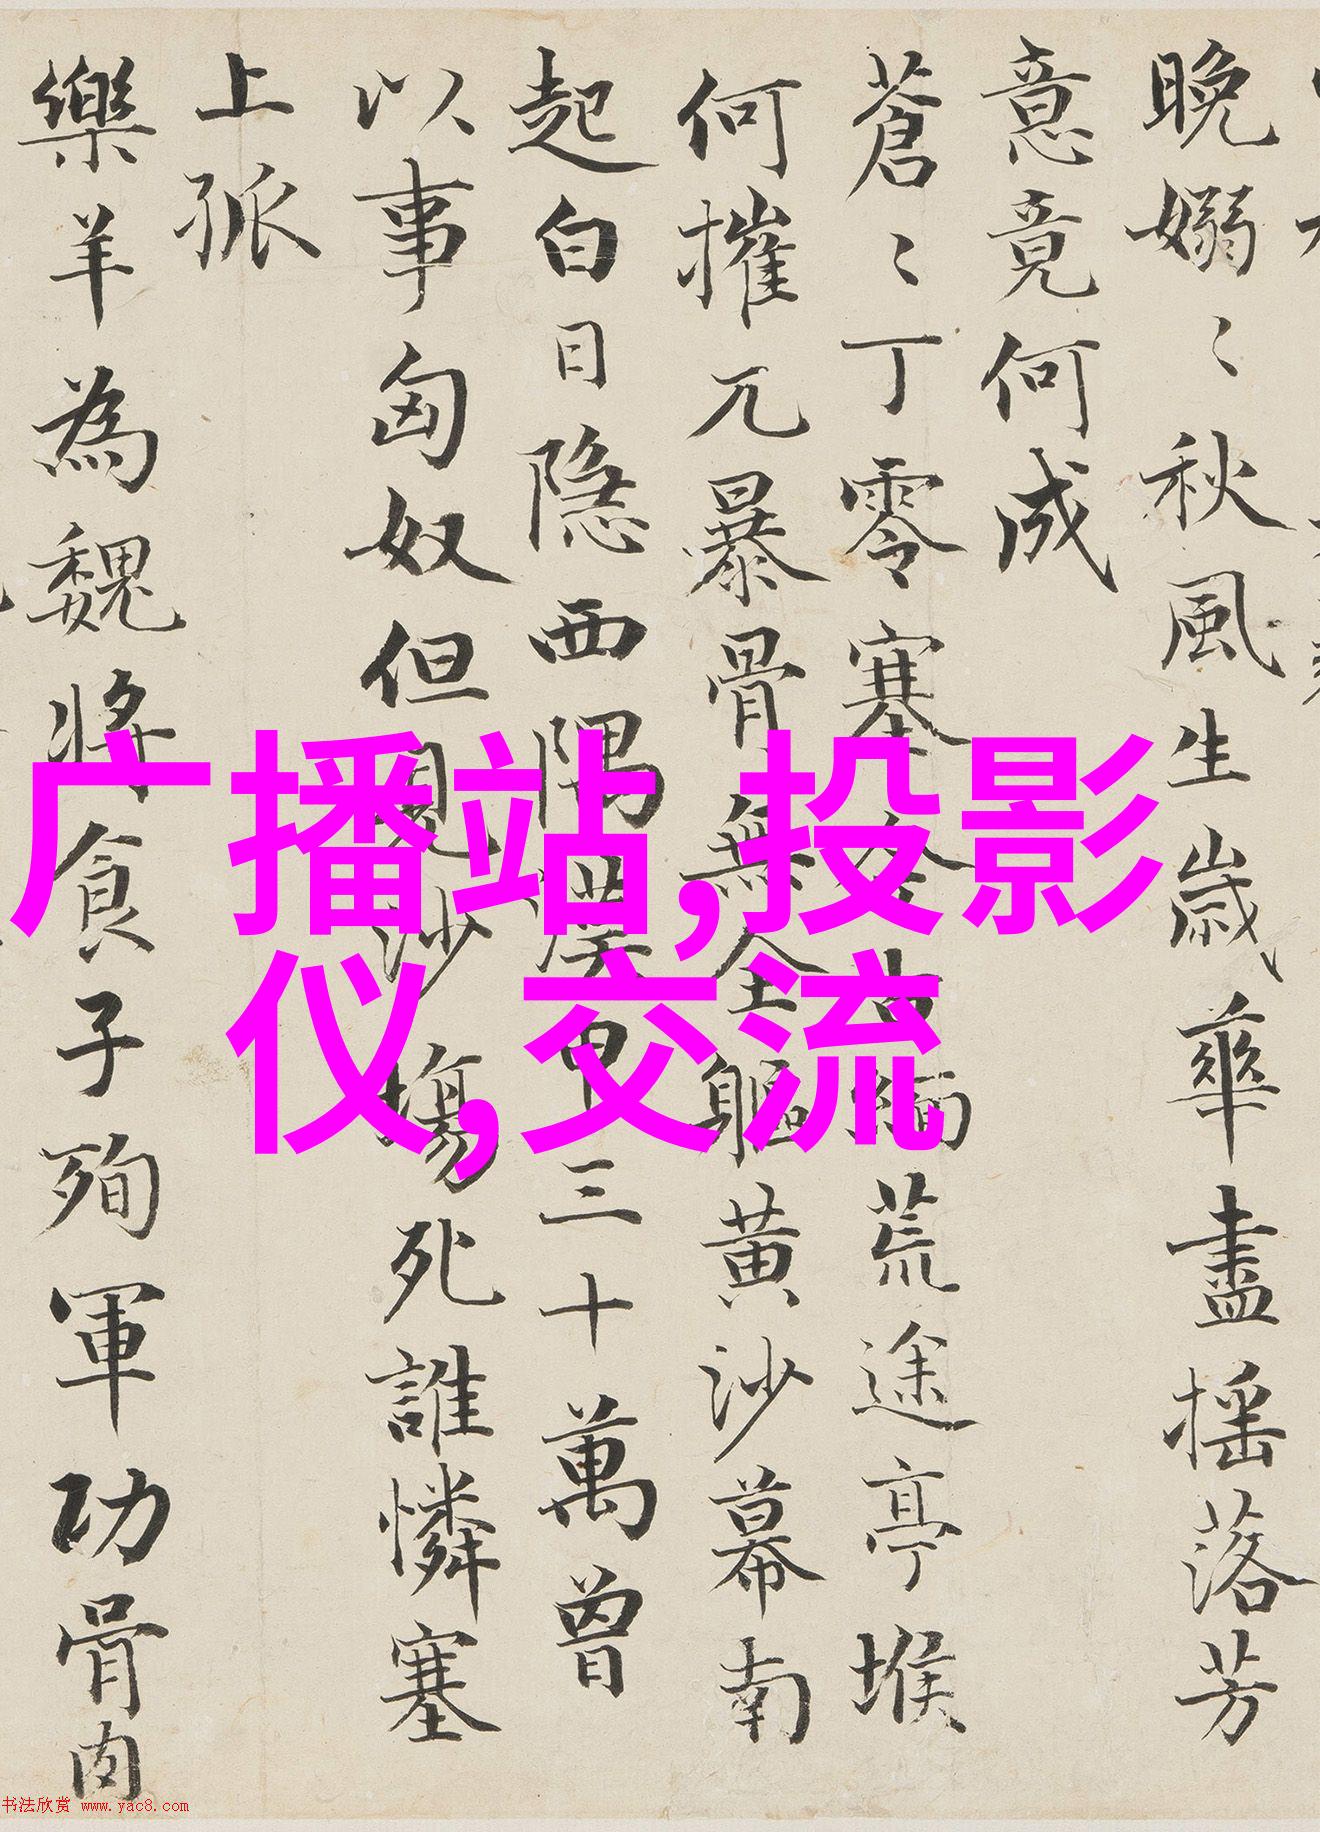 晚嫋〻秋風生歲華盡摇落芳
意竟何成
蒼〻丁零塞今古緬荒途亭堠
何摧兀暴骨無全軀黄沙幕南
起白日隐西隅漢甲三十萬曾
以事匈奴但見沙塲死誰憐塞
上孤
樂羊為魏將食子殉軍功骨肉
广播站,投影
仪,交流
书法欣赏 www.yac8.com